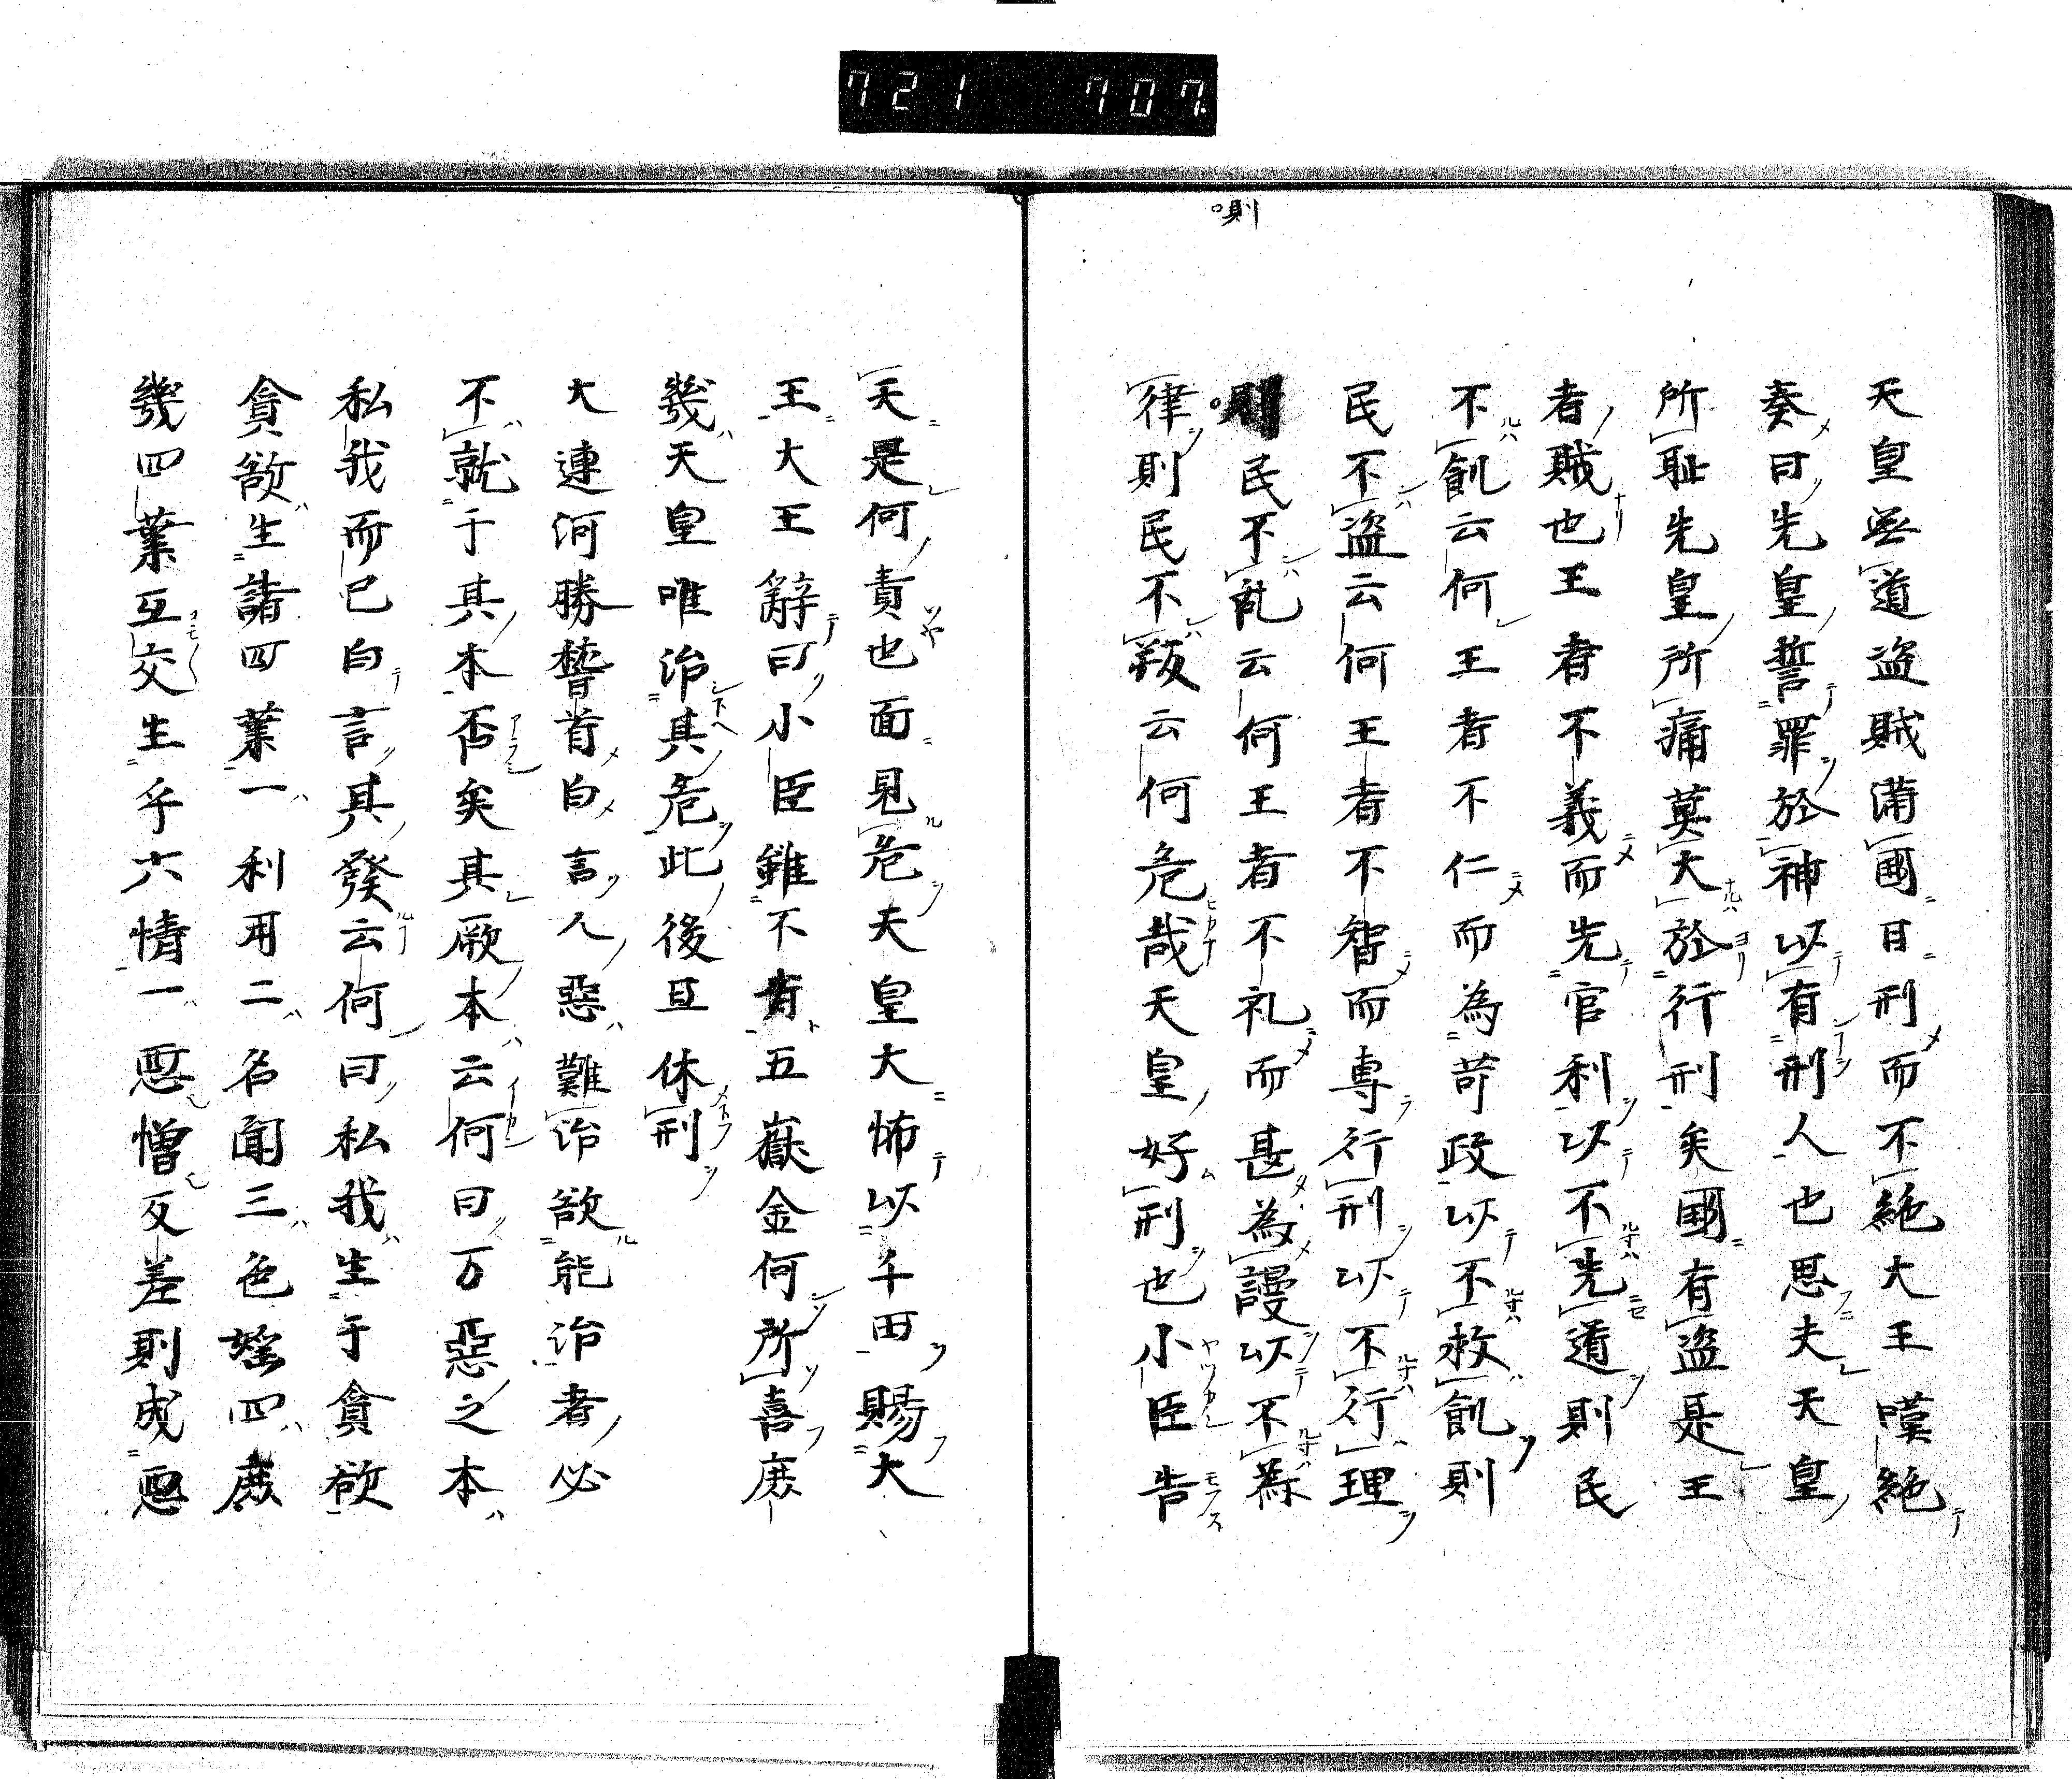 721 707
則
天皇無道盗賊満國日刑而不絶大王嘆絶
奏曰先皇誓罪於神以有刑人也思夫天皇
所耻先皇所痛莫大於行刑矣國有盗是王
者賊也王者不義而先官利以不先道則民
不飢云何王者不仁而為苛政以不救飢則
民不盗云何王者不智而専行刑以不行理
則民不乱云何王者不礼而甚為謾以不為
律則民不叛云何危哉天皇好刑也小臣告
天是何責也面見危天皇大怖以千田賜大
王大王辭曰小臣雖不肯五嶽金何所喜庶
幾天皇唯治其危此後且休刑
大連河勝稽首白言人惡難治欲能治者必
不就于其本否矣其厥本云何曰万惡之本
私我而已白言其發云何曰私我生于貪欲
貪欲生諸四葉一利用二名聞三色婬四
幾四葉互交生乎六情一惡憎反差則成惡